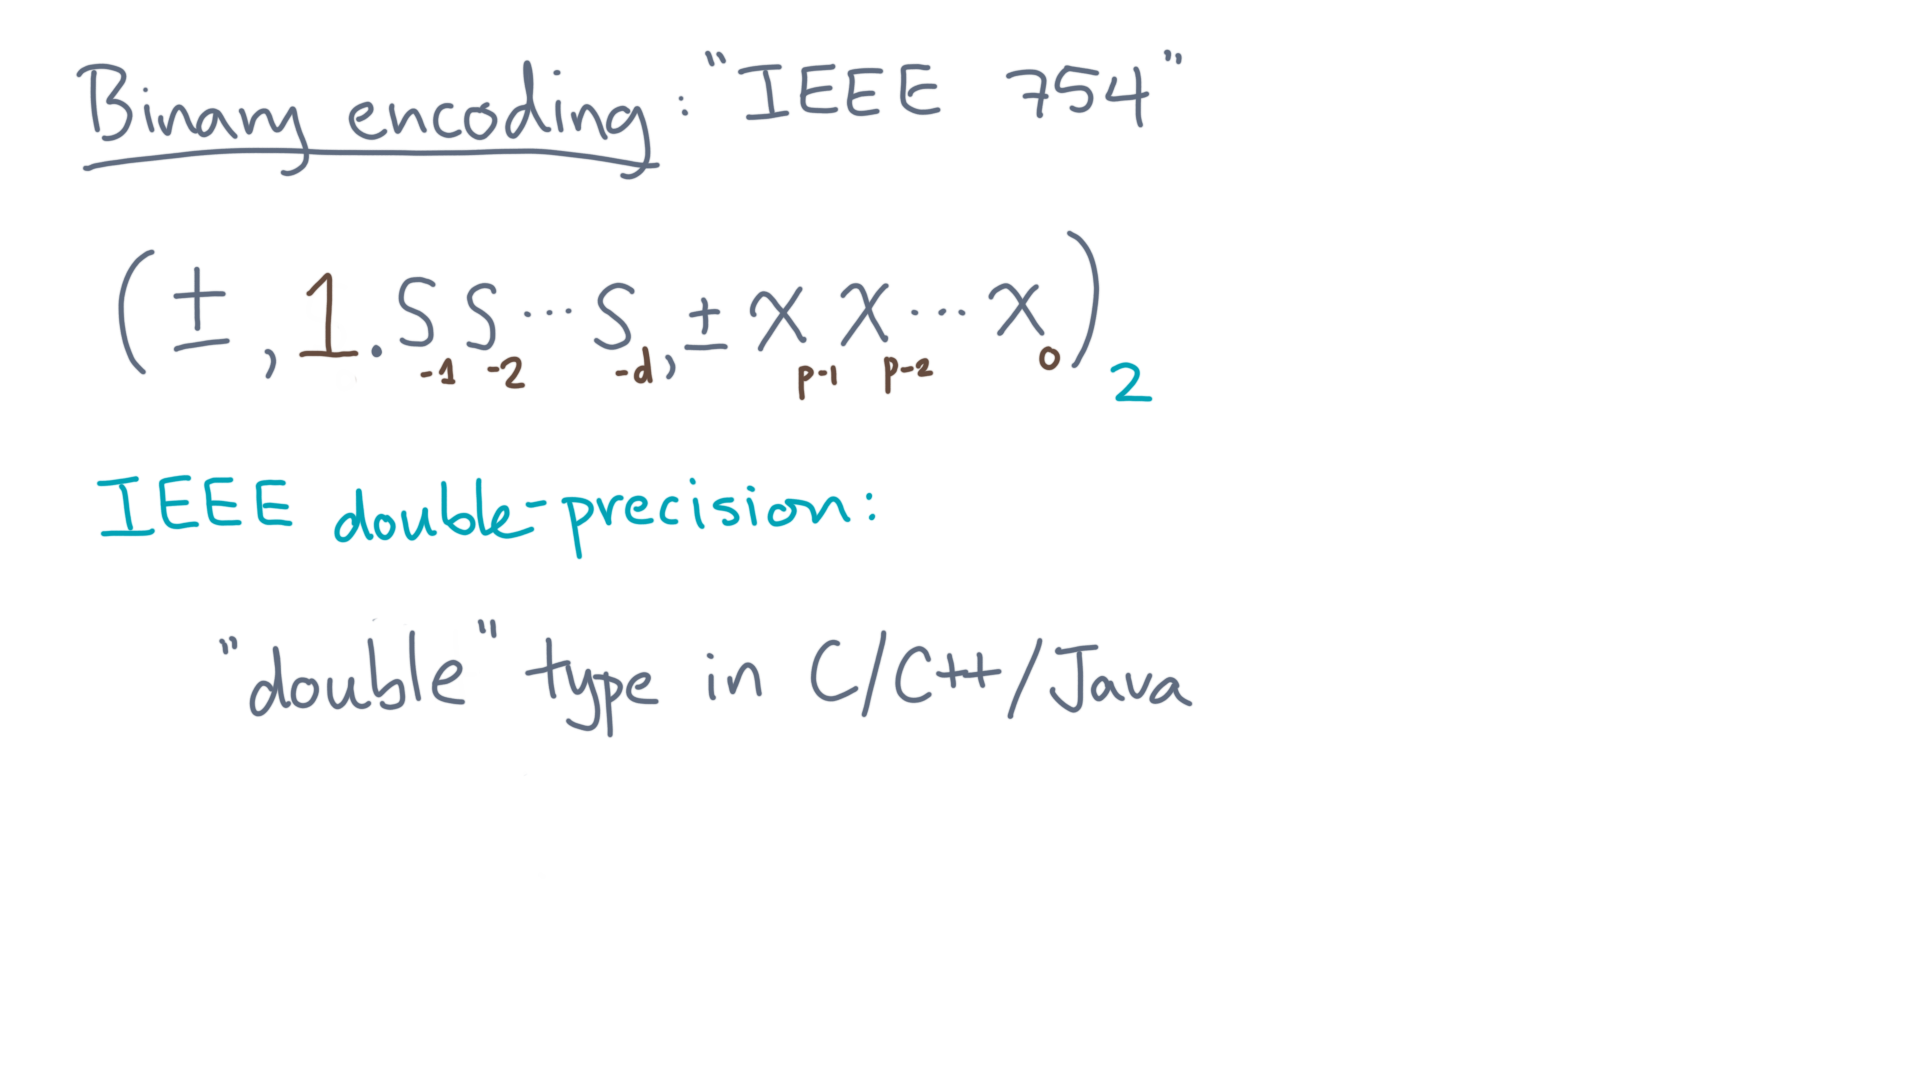 Binary encoding: "IEEE 754"
(±, 1.S₋₁S₋₂...S₋d, ±xₚ₋₁xₚ₋₂...x₀)₂
IEEE double-precision:
"double" type in C/C++/Java